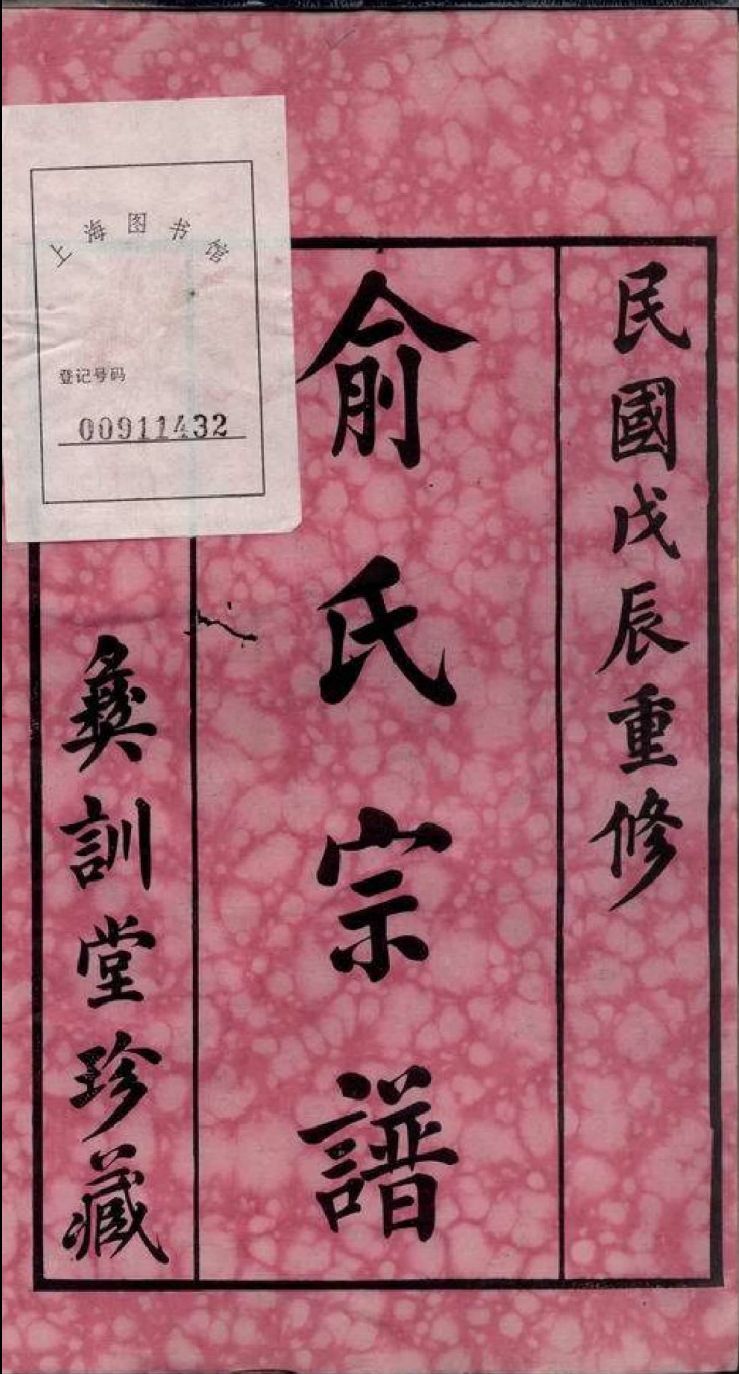 民國戊辰重修
俞氏宗譜
彝訓堂珍藏
上海图书馆
登记号码
00911432